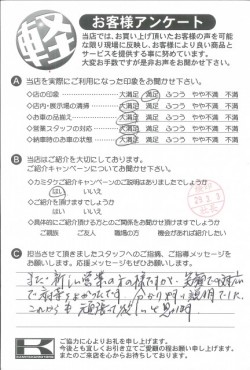 軽
お客様アンケート
当店では、お買い上げ頂いたお客様の声を可能
な限り現場に反映し、お客様により良い商品と
サービスを提供する事に努めています。
大変お手数ですが是非お声をお聞かせ下さい。
A 当店を実際にご利用になった印象をお聞かせ下さい。
◇店の印象 大満足 満足 ふつう やや不満 不満
◇店内・展示場の清掃 大満足 満足 ふつう やや不満 不満
◇お車の品揃え 大満足 満足 ふつう やや不満 不満
◇営業スタッフの対応 大満足 満足 ふつう やや不満 不満
◇納車時のお車の状態 大満足 満足 ふつう やや不満 不満
B 当店はご紹介を大切にしております。
ご紹介キャンペーンについてお聞かせ下さい。
◇カミタケご紹介キャンペーンのご説明はありましたでしょうか
はい いいえ
◇ご紹介を頂けますでしょうか
はい いいえ
◇具体的にご紹介頂ける方とのご関係をお聞かせ頂けますでしょうか
ご親族 ご友人 職場の方 機会があれば紹介したい
C 担当させて頂きましたスタッフへのご指摘、ご指導メッセージを
お願いします。応援メッセージもぜひお願いします。
まだ新しい営業の方の様ですが、笑顔での対応
これからも頑張って欲しいと思います。
ご協力に心よりお礼を申し上げます。
今後とも宜しくお引き立てご愛顧の程お願い申し上げます。
またのご来店を心からお待ちしております。